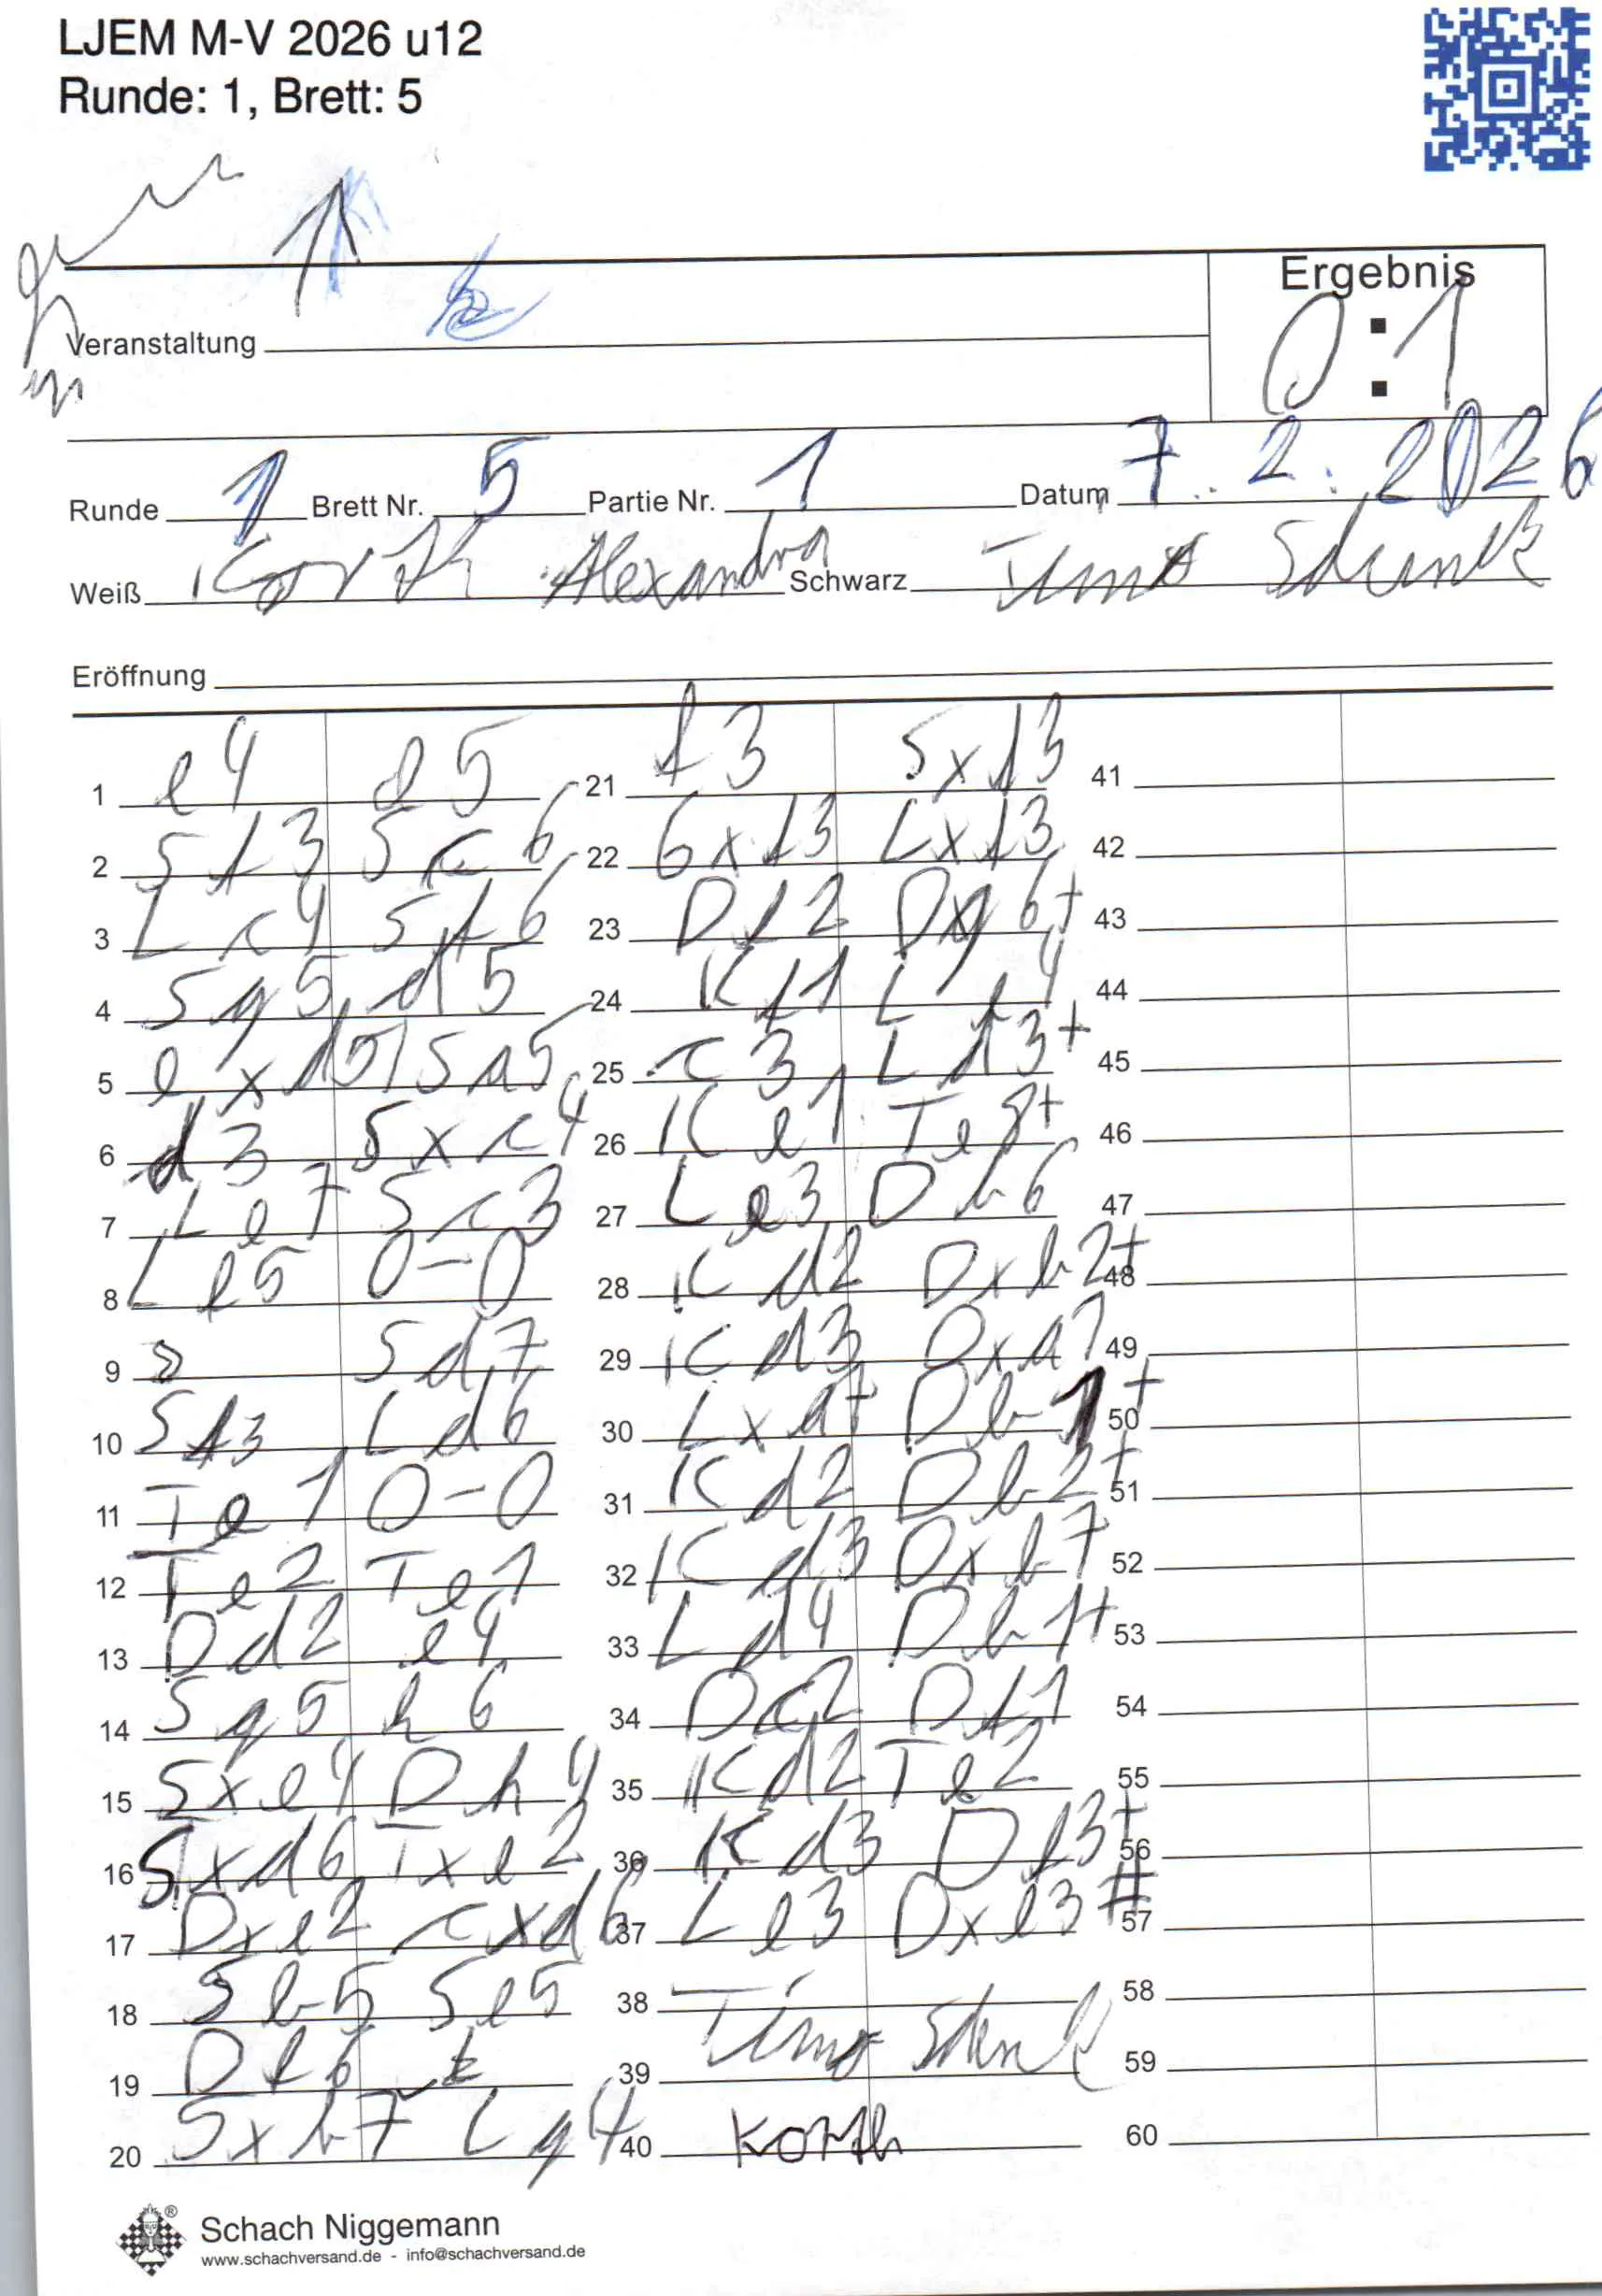 LJEM M-V 2026 u12
Runde: 1, Brett: 5
Ergebnis
0:1
Veranstaltung
Runde 1 Brett Nr. 5 Partie Nr. 1 Datum 7. 2. 2026
Weiß Korth Alexandra Schwarz Timo Schenk
Eröffnung
1 e4 e5
2 Sf3 Sc6
3 Lc4 Sf6
4 Sg5 d5
5 exd5 Sa5
6 d3 Sxc4
7 Le7 Sc3
8 Le5 0-0
9 Sd7
10 Sf3 Ld6
11 Te1 0-0
12 Te2 Te1
13 Dd2 e4
14 Sg5 h6
15 Sxe4 Dh4
16 Sxd6 Txe2
17 Dxe2 cxd6
18 Sb5 Se5
19 Df6
20 Sxb7 Lg4
21 f3 Sxf3
22 Gxf3 Lxf3
23 Df2 Dg6+
24 Kf1 Le4
25 c3 Ld3+
26 Ke1 Te8+
27 Le3 Db6
28 Kd2 Dxb2+
29 Kd3 Dxa1
30 Lxa7 Db1+
31 Kd2 Db2+
32 Kd3 Dxb7
33 Ld4 Db1+
34 Dc2 Df1
35 Kd2 Te2
36 Kd3 Df3+
37 Le3 Dxe3#
38 Timo Schenk
39
40 Korth
41
42
43
44
45
46
47
48
49
50
51
52
53
54
55
56
57
58
59
60
Schach Niggemann
www.schachversand.de - info@schachversand.de